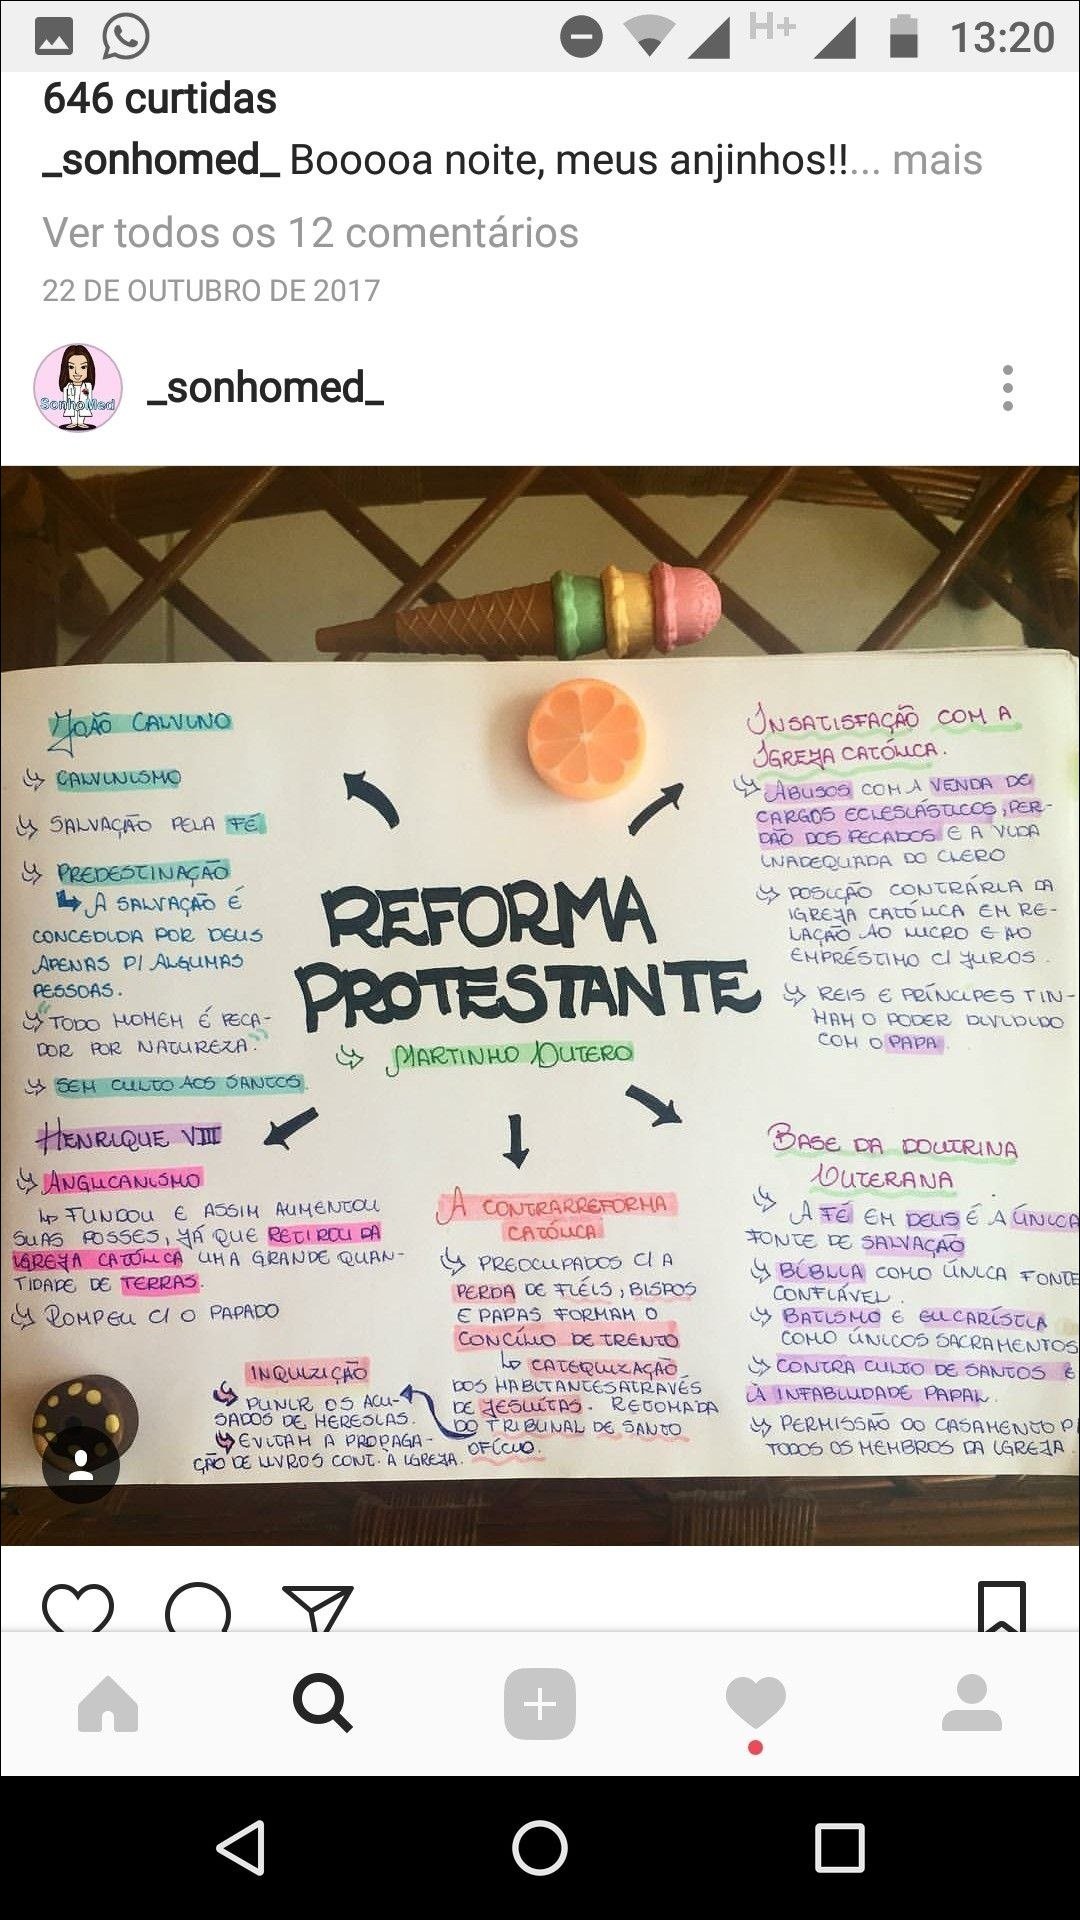 13:20
H+
646 curtidas
_sonhomed_ Booooa noite, meus anjinhos!!... mais
Ver todos os 12 comentários
22 DE OUTUBRO DE 2017
SonhoMed
_sonhomed_
REFORMA
PROTESTANTE
↳ MARTINHO LUTERO
JOÃO CALVINO
↳ CALVINISMO
↳ SALVAÇÃO PELA FÉ
↳ PREDESTINAÇÃO
↳ A SALVAÇÃO É
CONCEDIDA POR DEUS
APENAS P/ ALGUMAS
PESSOAS.
↳ "TODO HOMEM É PECA-
DOR POR NATUREZA."
↳ SEM CULTO AOS SANTOS.
INSATISFAÇÃO COM A
IGREJA CATÓLICA.
↳ ABUSOS COM A VENDA DE
CARGOS ECLESIÁSTICOS, PER-
DÃO DOS PECADOS E A VIDA
INADEQUADA DO CLERO
↳ POSIÇÃO CONTRÁRIA DA
IGREJA CATÓLICA EM RE-
LAÇÃO AO LUCRO E AO
EMPRÉSTIMO C/ JUROS.
↳ REIS E PRÍNCIPES TIN-
HAM O PODER DIVIDIDO
COM O PAPA.
HENRIQUE VIII
↳ ANGLICANISMO
↳ FUNDOU E ASSIM AUMENTOU
SUAS POSSES, JÁ QUE RETIROU DA
IGREJA CATÓLICA UMA GRANDE QUAN-
TIDADE DE TERRAS.
↳ ROMPEU C/ O PAPADO
A CONTRARREFORMA
CATÓLICA
↳ PREOCUPADOS C/ A
PERDA DE FIÉIS, BISPOS
E PAPAS FORMAM O
CONCÍLIO DE TRENTO
↳ CATEQUIZAÇÃO
DOS HABITANTES ATRAVÉS
DE JESUÍTAS. RETOMADA
DO TRIBUNAL DE SANTO
OFÍCIO.
INQUIZIÇÃO
↳ PUNIR OS ACU-
SADOS DE HERESIAS.
↳ EVITAM A PROPAGA-
ÇÃO DE LIVROS CONT. À IGREJA.
BASE DA DOUTRINA
LUTERANA
↳ A FÉ EM DEUS É A ÚNICA
FONTE DE SALVAÇÃO
↳ BÍBLIA COMO ÚNICA FONTE
CONFIÁVEL.
↳ BATISMO E EUCARÍSTIA
COMO ÚNICOS SACRAMENTOS
↳ CONTRA CULTO DE SANTOS E
À INFABILIDADE PAPAL.
↳ PERMISSÃO DO CASAMENTO P/
TODOS OS MEMBROS DA IGREJA.